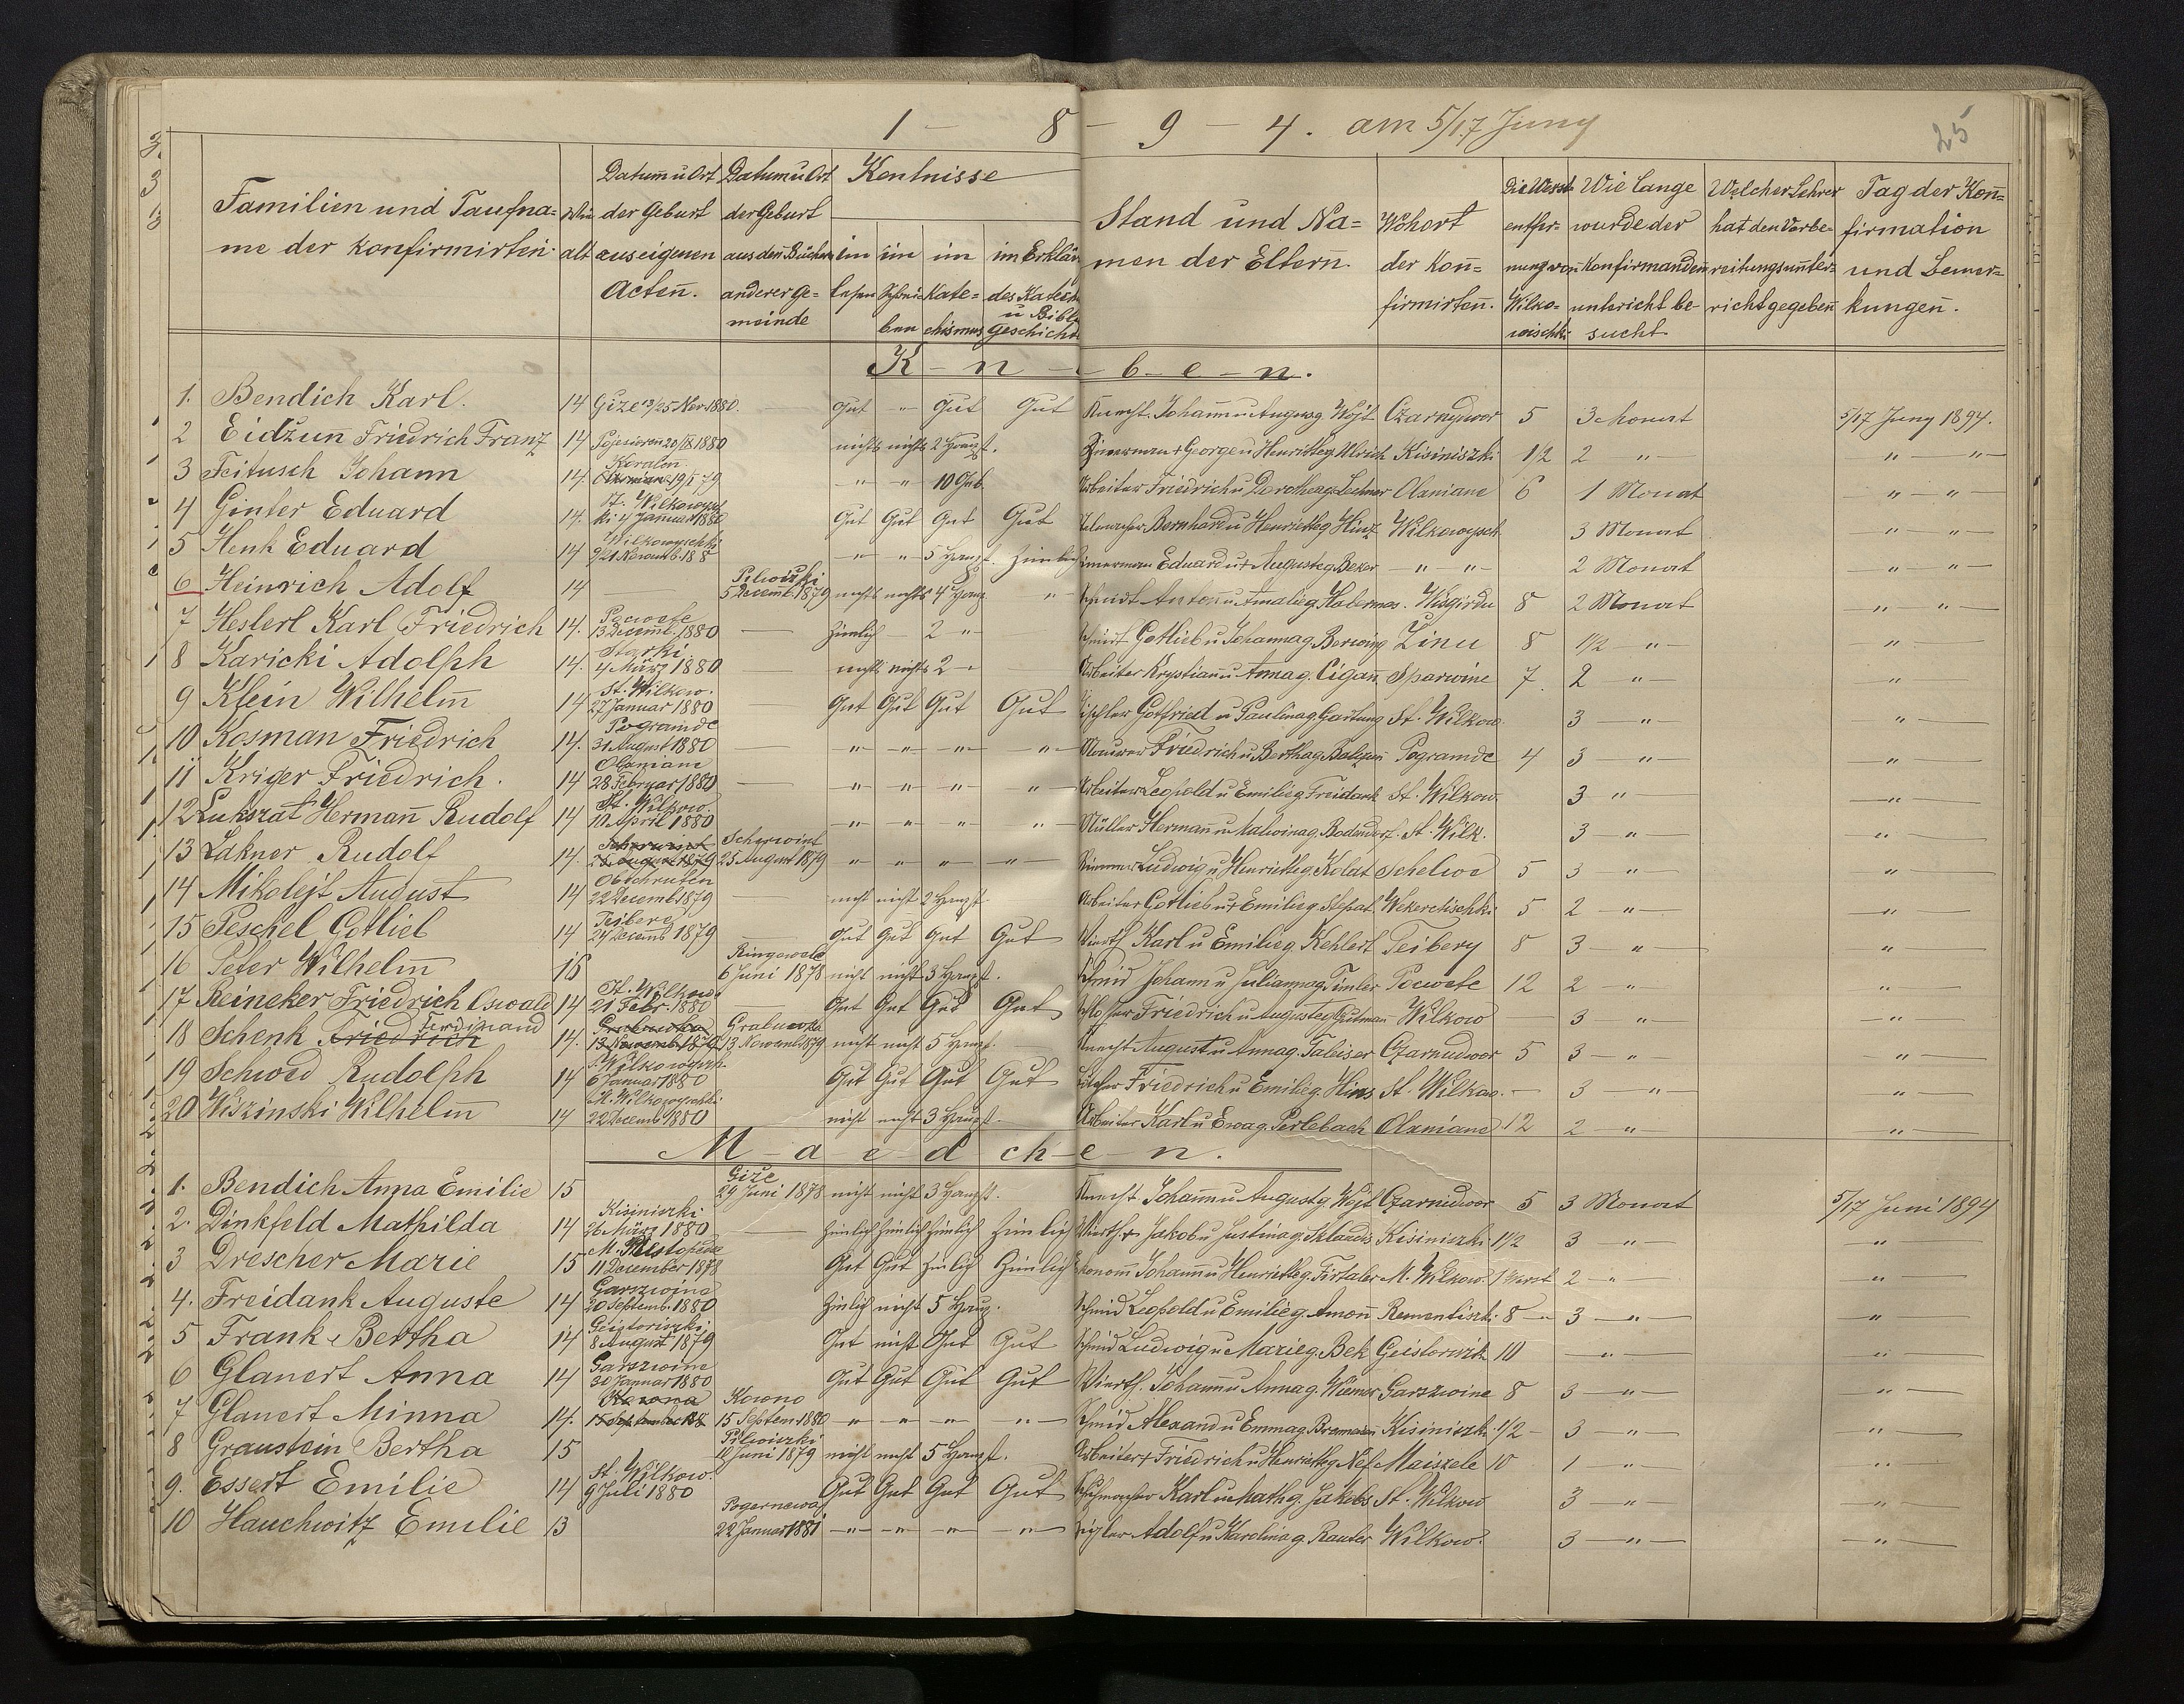 1 - 8 - 9 - 4. am 5/17 Juny
25
Familien und Taufna= me der Konfirmirten. | Wie alt | Datum u Ort der Geburt aus eigenen Acten. | Datum u Ort der Geburt aus den Büchern anderer Ge= meinde | Kentnisse | im lesen | im Schrei ben | im Kate= chismus | im Erklär des Katech u Bibl Geschicht | Stand und Na= men der Eltern | Wohort der Kon= firmirten. | Die Werst entfer= nung von Wilko= wischki | Wie lange wurde der Konfirmanden unterricht be= sucht | Welcher Lehrer hat den Vorbe= reitungsunter= richt gegeben | Tag der Kon= firmation und Bemer= kungen.
K - n - b - e - n.
1. Bendich Karl. 14 Gize 13/25 Nov 1880. Gut " Gut Gut Knecht Johann u August g. Wojt Czarnydwor 5 3 Monat 5/17 Juny 1894.
2 Eidžun Friedrich Franz 14 1880 nichts nichts 2 Haupt. George u Henriette g. Ulrich Kisiniszki 1/2 2 " " "
3 Feitusch Johann 14. 19/I 79 " " 10 Geb. Arbeiter Friedrich u Dorothea g. Lechner Olaniane 6 1 Monat " "
4 Ginter Eduard 14. St. Wilkowysch ki 4 Januar 1880 Gut Gut Gut Gut Bernhard u Henriette g. Hinz Wilkowysch 3 Monat " "
5 Henk Eduard 14 Wilkowyschki 9/21 Novemb. 188 " " 5 Haupt. Zimlich Eduard u Auguste g. Beker " " 2 Monat " "
6 Heinrich Adolf 14 Pilwiszki 5 Decemb. 1879 nichts nichts 4 Haup " Schmidt Anton u Amalie g. Wisgirdu 8 2 Monat " "
7 Hesterl Karl Friedrich 14. Pocwete 13 Decemb. 1880 Zimlich 2 " Gotlieb u Johanna g. Berwing Zinu 8 1/2 " "
8 Karicki Adolph 14. Starki 4 März 1880 nichts nichts 2 " Arbeiter Krystian u Anna g. Cigan Sparwine 7. 2 " "
9 Klein Wilhelm 14 St. Wilkow. 27 Januar 1880 Gut Gut Gut Gut Tischler Gotfried u Paulina g. Gartung St. Wilkow. 3 " "
10 Kosman Friedrich 14. Pogramde 31 August 1880 " " " " Maurer Friedrich u Bertha g. Pogramde 4 3 " "
11 Kriger Friedrich. 14 Olaniane 28 Februar 1880 " " " " Arbeiter Leopold u Emilie g. Freidank St. Wilkow. 3 " "
12 Lukszat Herman Rudolf 14 St. Wilkow. 10 April 1880 " " " " Müller Herman u Malwina g. Bodendorf. St. Wilk. 3 " "
13 Lakner Rudolf 14. Schyrwint 25 August 1879 " " " " Ludwig u Henriette g. Kolat Schelwe 5 3 " "
14 Mikolejt August 14 Obschruten 22 Decemb 1879 nicht nicht 2 Haupt. Arbeiter Gotlieb u + Emilie g. Stepat Wekerotischki 5 2 " "
15 Peschel Gotlieb 14 Teibery 24 Decemb 1879 Gut Gut Gut Gut Wirth Karl u Emilie g. Kehlert Teibery 8 3 " "
16 Peter Wilhelm 16 Ringowole 6 Juni 1878 nicht nicht 3 Haupt. Schmid Johann u Julianna g. Timler Pocwete 12 2 " "
17 Reineker Friedrich Oswald 14 St. Wilkow. 21 Febr. 1880 Gut Gut Gut Gut Schlosser Friedrich u Auguste g. Gutman Wilkow 3 " "
18 Schenk Friedrich Ferdinand 14. Grabuwka 13 Novemb 1879 Grabuwka 13 Novemb 1879 nicht nicht 5 Haupt. Knecht August u Anna g. Tableiser Czarnudwor 5 3 " "
19 Schwed Rudolph 14 St. Wilkowysch. 6 Januar 1880 Gut Gut Gut Gut Friedrich u Emilie g. Hins St. Wilkow. 3 " "
20 Wiszinski Wilhelm 14 St. Wilkowyschki 22 Decemb 1880 nicht nicht 3 Haupt. Arbeiter Karl u Ewa g. Perlebach Olaniane 12 2 " "
M - a - e - d - ch - e - n.
1. Bendich Anna Emilie 15 Gize 29 Juni 1878 nicht nicht 3 Haupt. Knecht Johann u August g. Wojt Czarnidwor 5 3 Monat 5/17 Juni 1894
2. Dinkfeld Mathilda 14 Kisiniszki 26 März 1880 Zimlich Zimlich Zimlich Zimlich Wirth + Jakob u Justina g. Sklandis Kisiniszki 1/2 3 " "
3 Drescher Marie 15 11 December 1878 Gut Gut Zimlich Zimlich Ekonom Johann u Henriette g. Firtaler M. Wilkow. 1 Werst 2 " "
4. Freidank Auguste 14 Garszwine 20 Septemb. 1880 Zimlich nicht 5 Haup. Schmid Leopold u Emilie g. Amon 8 3 " "
5 Frank Bertha 14 Geistoriszki 8 August 1879 Gut nicht Gut Gut Schmid Ludwig u Marie g. Bek Geistorizk 10 " "
6 Glanert Anna 14 Garszwine 30 Januar 1880 Gut Gut Gut Gut Wirth. Johann u Anna g. Wiemer Garszwine 8 3 " "
7 Glanert Minna 14. Kowno 15 Septem 1880 " " " " Schmid Alexand u Emma g. Kisiniszk 1/2 3 " "
8 Graustein Bertha 15 Pilwiszki 10 Juni 1879 nicht nicht 5 Haupt. Arbeiter + Friedrich u Henriette g. Nef Maiszele 10 1 " "
9. Essert Emilie 14 St. Wilkow. 9 Juli 1880 Gut Gut Gut Gut Schuhmacher Karl u Math g. Jakobs St. Wilkow 3 " "
10 Hauchwitz Emilie 13 Pogernewa 22 Januar 1881 " " " " Adolf u Karolina g. Rauter Wilkow. 3 " "